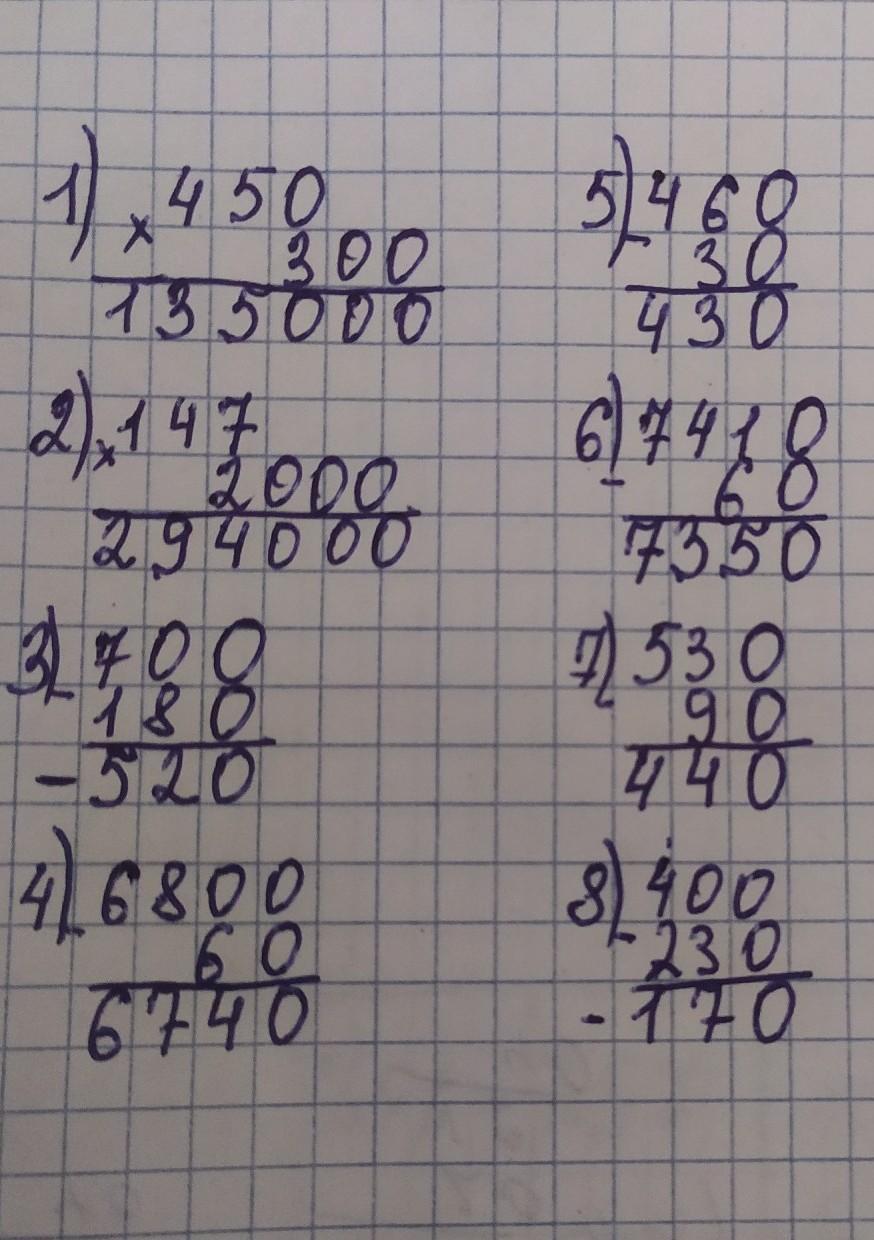 1) × 450
300
135000
2) × 147
2000
294000
3) - 700
180
-520
4) - 6800
60
6740
5) - 460
30
430
6) - 7410
60
7350
7) - 530
90
440
8) - 400
230
-170